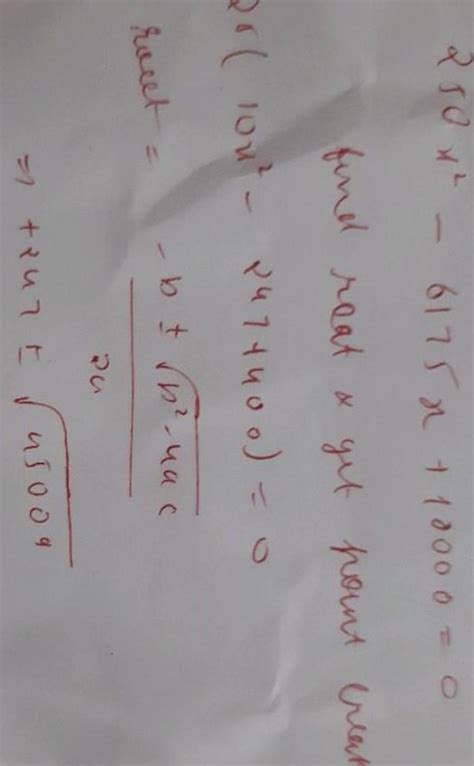 250 x² - 6175 x + 10000 = 0
find root & get point creat
25( 10x² - 247 + 400) = 0
root = - b ± √b²-4ac
2a
⇒ +247 ± √45009